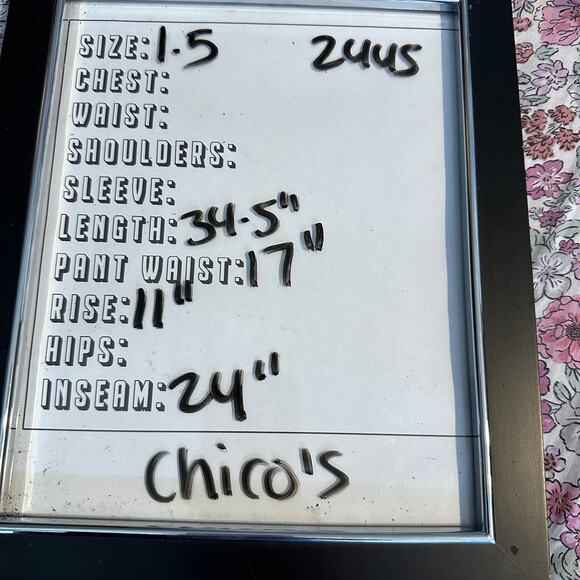 SIZE: 1.5 2445
CHEST:
WAIST:
SHOULDERS:
SLEEVE:
LENGTH: 34.5"
PANT WAIST: 17"
RISE: 11"
HIPS:
INSEAM: 24"
Chico's